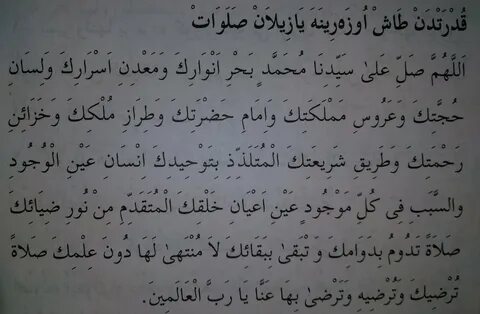 قُدْرَتْدَنْ طَاشْ اُوزَەرِينَهَ يَازِيلَانْ صَلَوَاتْ
اَللَّهُمَّ صَلِّ عَلَىٰ سَيِّدِنَا مُحَمَّدٍ بَحْرِ اَنْوَارِكَ وَمَعْدِنِ اَسْرَارِكَ وَلِسَانِ
حُجَّتِكَ وَعَرُوسِ مَمْلَكَتِكَ وَاِمَامِ حَضْرَتِكَ وَطِرَازِ مُلْكِكَ وَخَزَائِنِ
رَحْمَتِكَ وَطَرِيقِ شَرِيعَتِكَ الْمُتَلَذِّذِ بِتَوْحِيدِكَ اِنْسَانِ عَيْنِ الْوُجُودِ
وَالسَّبَبِ فِى كُلِّ مَوْجُودٍ عَيْنِ اَعْيَانِ خَلْقِكَ الْمُتَقَدِّمِ مِنْ نُورِ ضِيَائِكَ
صَلَاةً تَدُومُ بِدَوَامِكَ وَ تَبْقَىٰ بِبَقَائِكَ لَا مُنْتَهىٰ لَهَا دُونَ عِلْمِكَ صَلَاةً
تُرْضِيكَ وَتُرْضِيهِ وَتَرْضىٰ بِهَا عَنَّا يَا رَبَّ الْعَالَمِينَ.